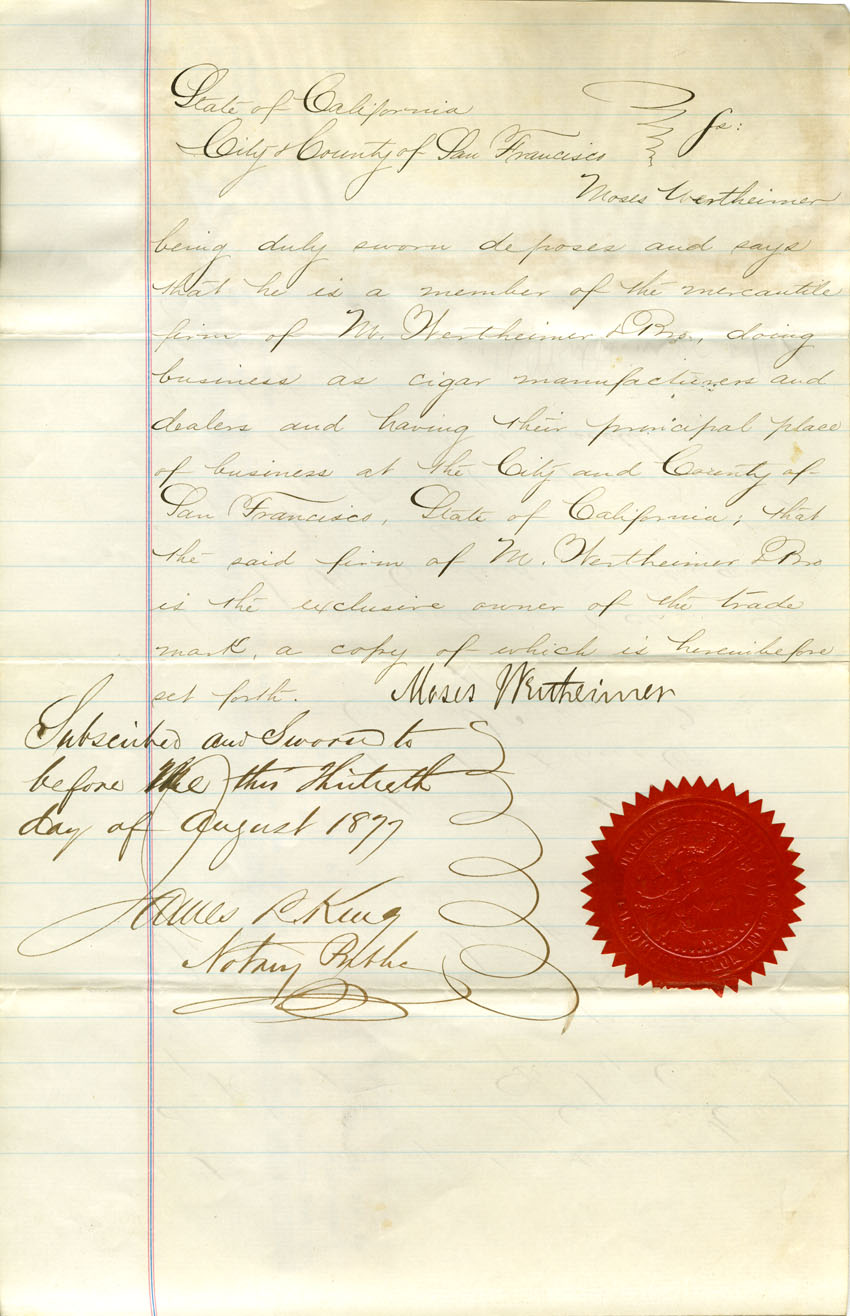 State of California
City & County of San Francisco } ss:
Moses Wertheimer
being duly sworn deposes and says
that he is a member of the mercantile
firm of M. Wertheimer & Bro., doing
business as cigar manufacturers and
dealers and having their principal place
of business at the City and County of
San Francisco, State of California; that
the said firm of M. Wertheimer & Bro
is the exclusive owner of the trade
mark, a copy of which is hereinbefore
set forth. Moses Wertheimer
Subscribed and Sworn to
before Me this Thirtieth
day of August 1877
James L King
Notary Public